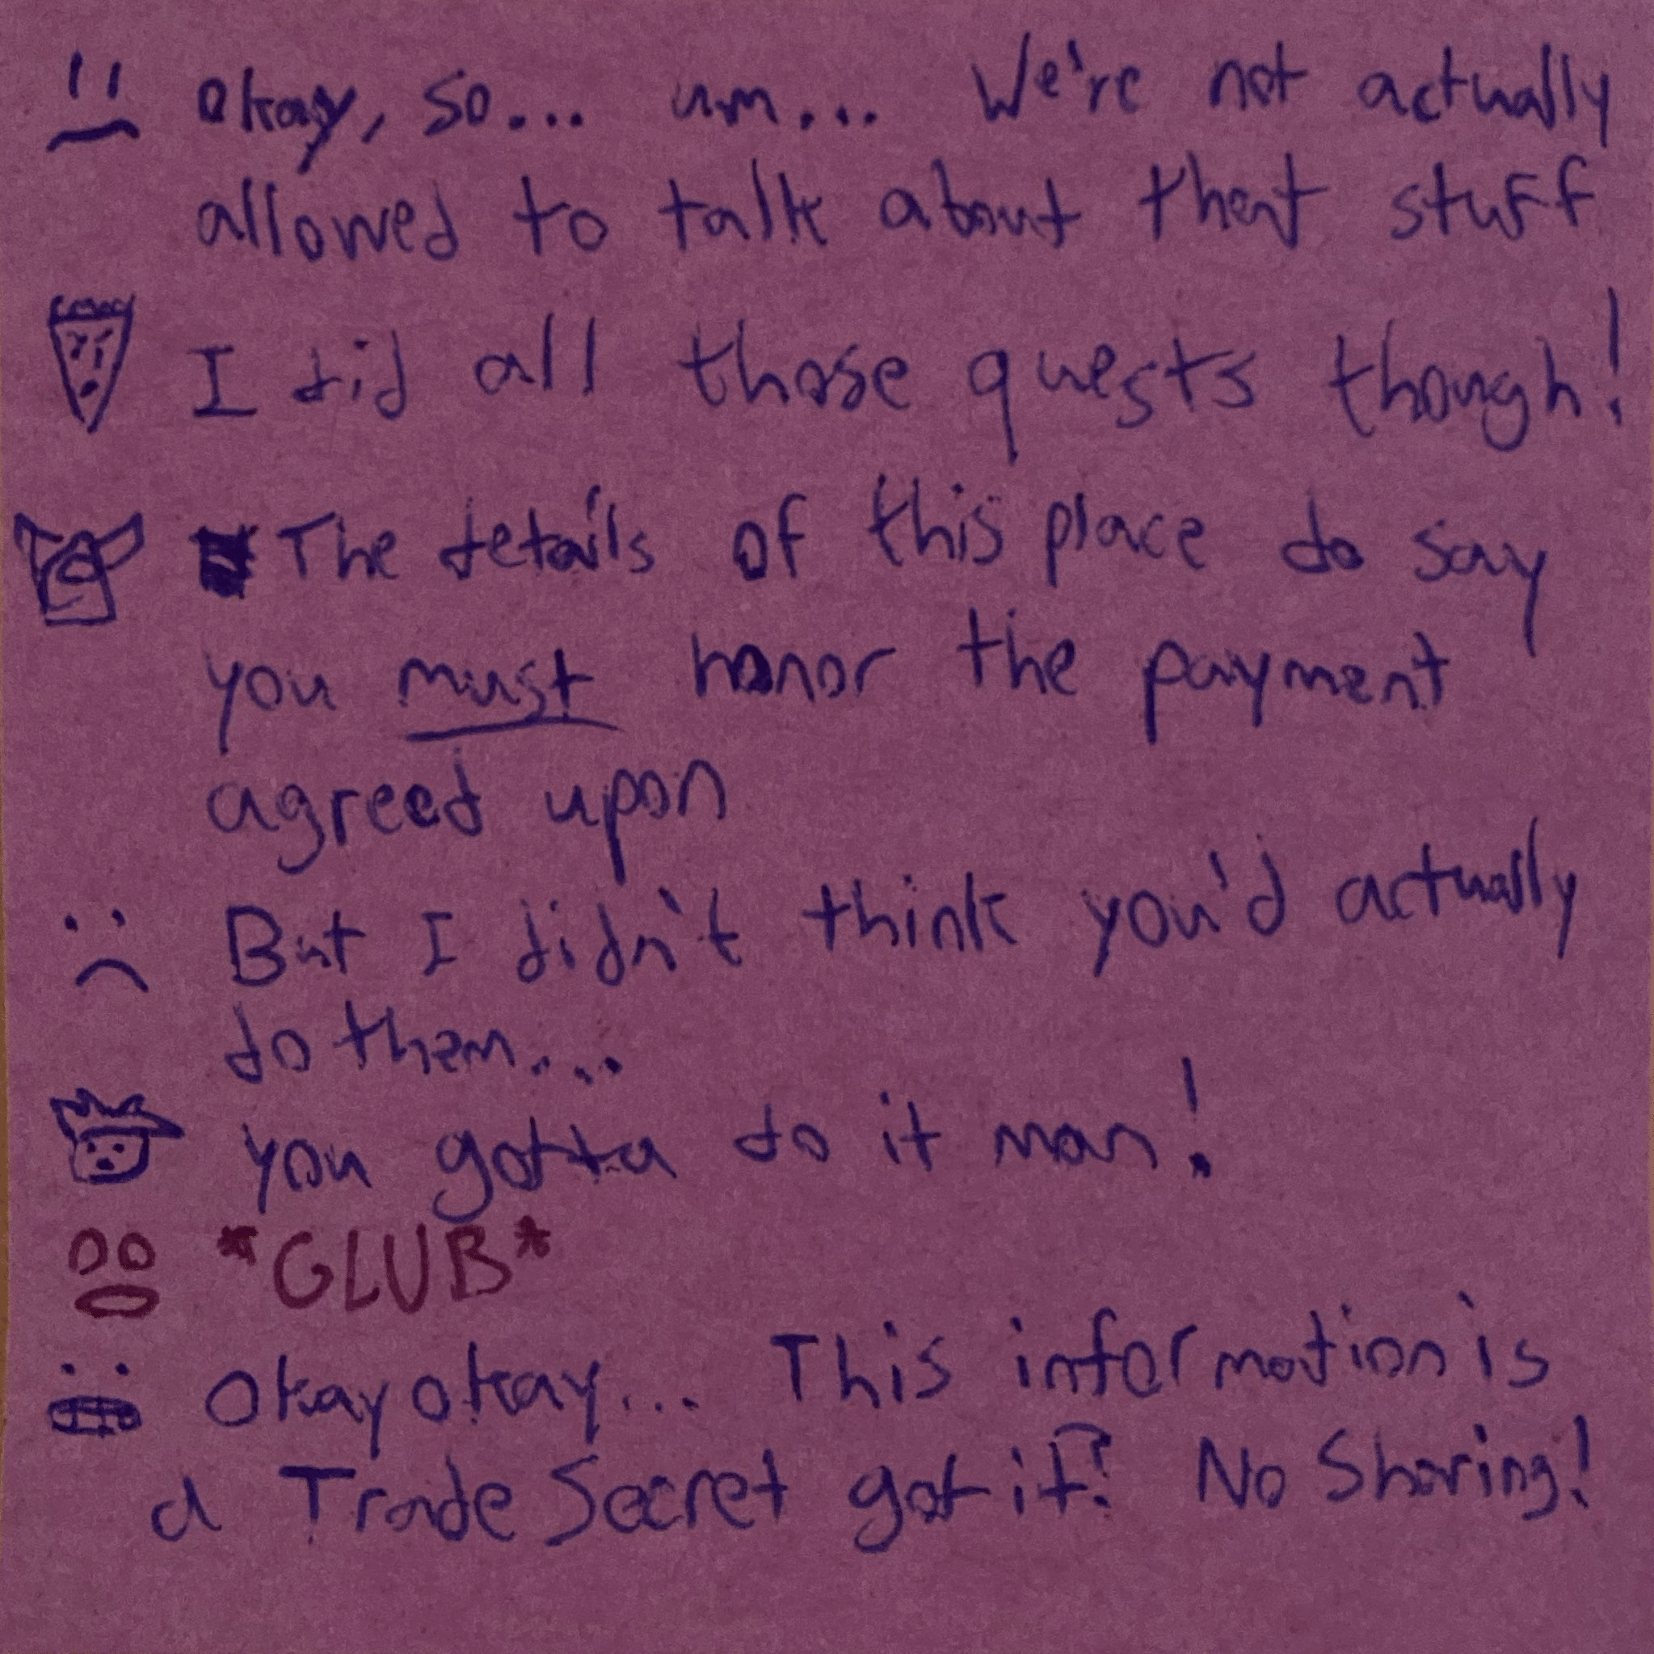 okay, so... um... We're not actually
allowed to talk about that stuff
I did all those quests though!
The details of this place do say
you must honor the payment
agreed upon
But I didn't think you'd actually
do them....
you gotta do it man!
*GLUB*
Okay okay... This information is
a Trade Secret got it? No Sharing!